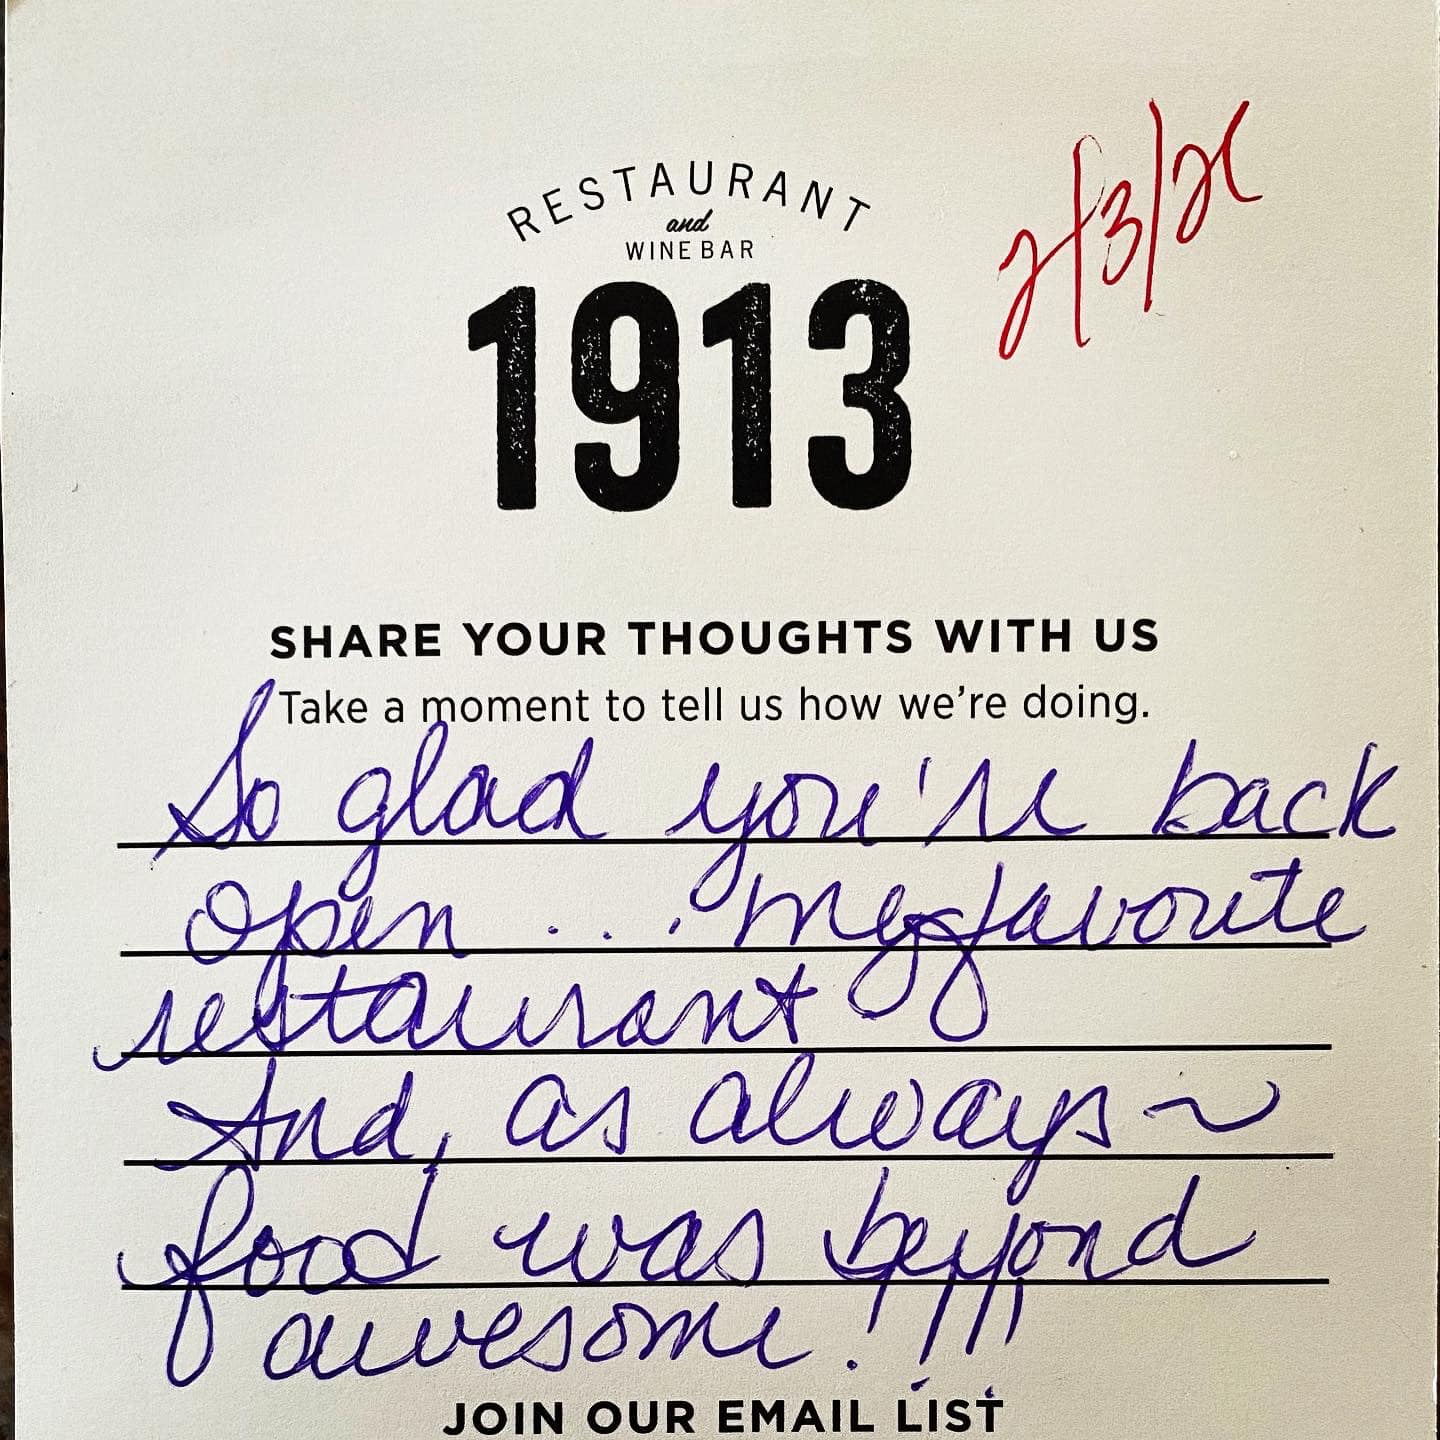 RESTAURANT
and
WINE BAR
1913
2/3/21
SHARE YOUR THOUGHTS WITH US
Take a moment to tell us how we're doing.
So glad you're back
open ... my favorite
restaurant
And, as always ~
food was beyond
awesome!!!!
JOIN OUR EMAIL LIST